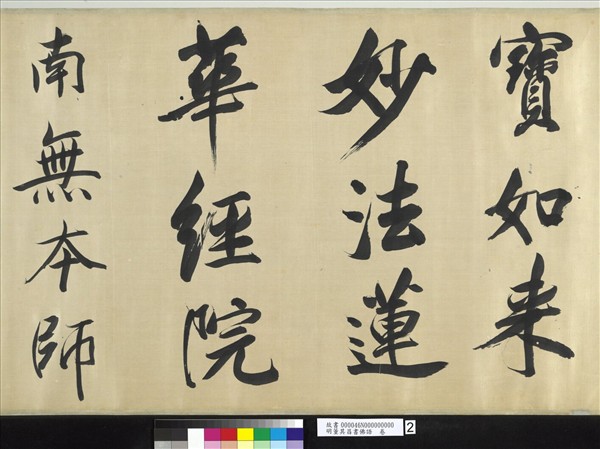 寶如来
妙法蓮
華經院
南無本師
故書 000046N000000000
明董其昌書佛語 卷
2